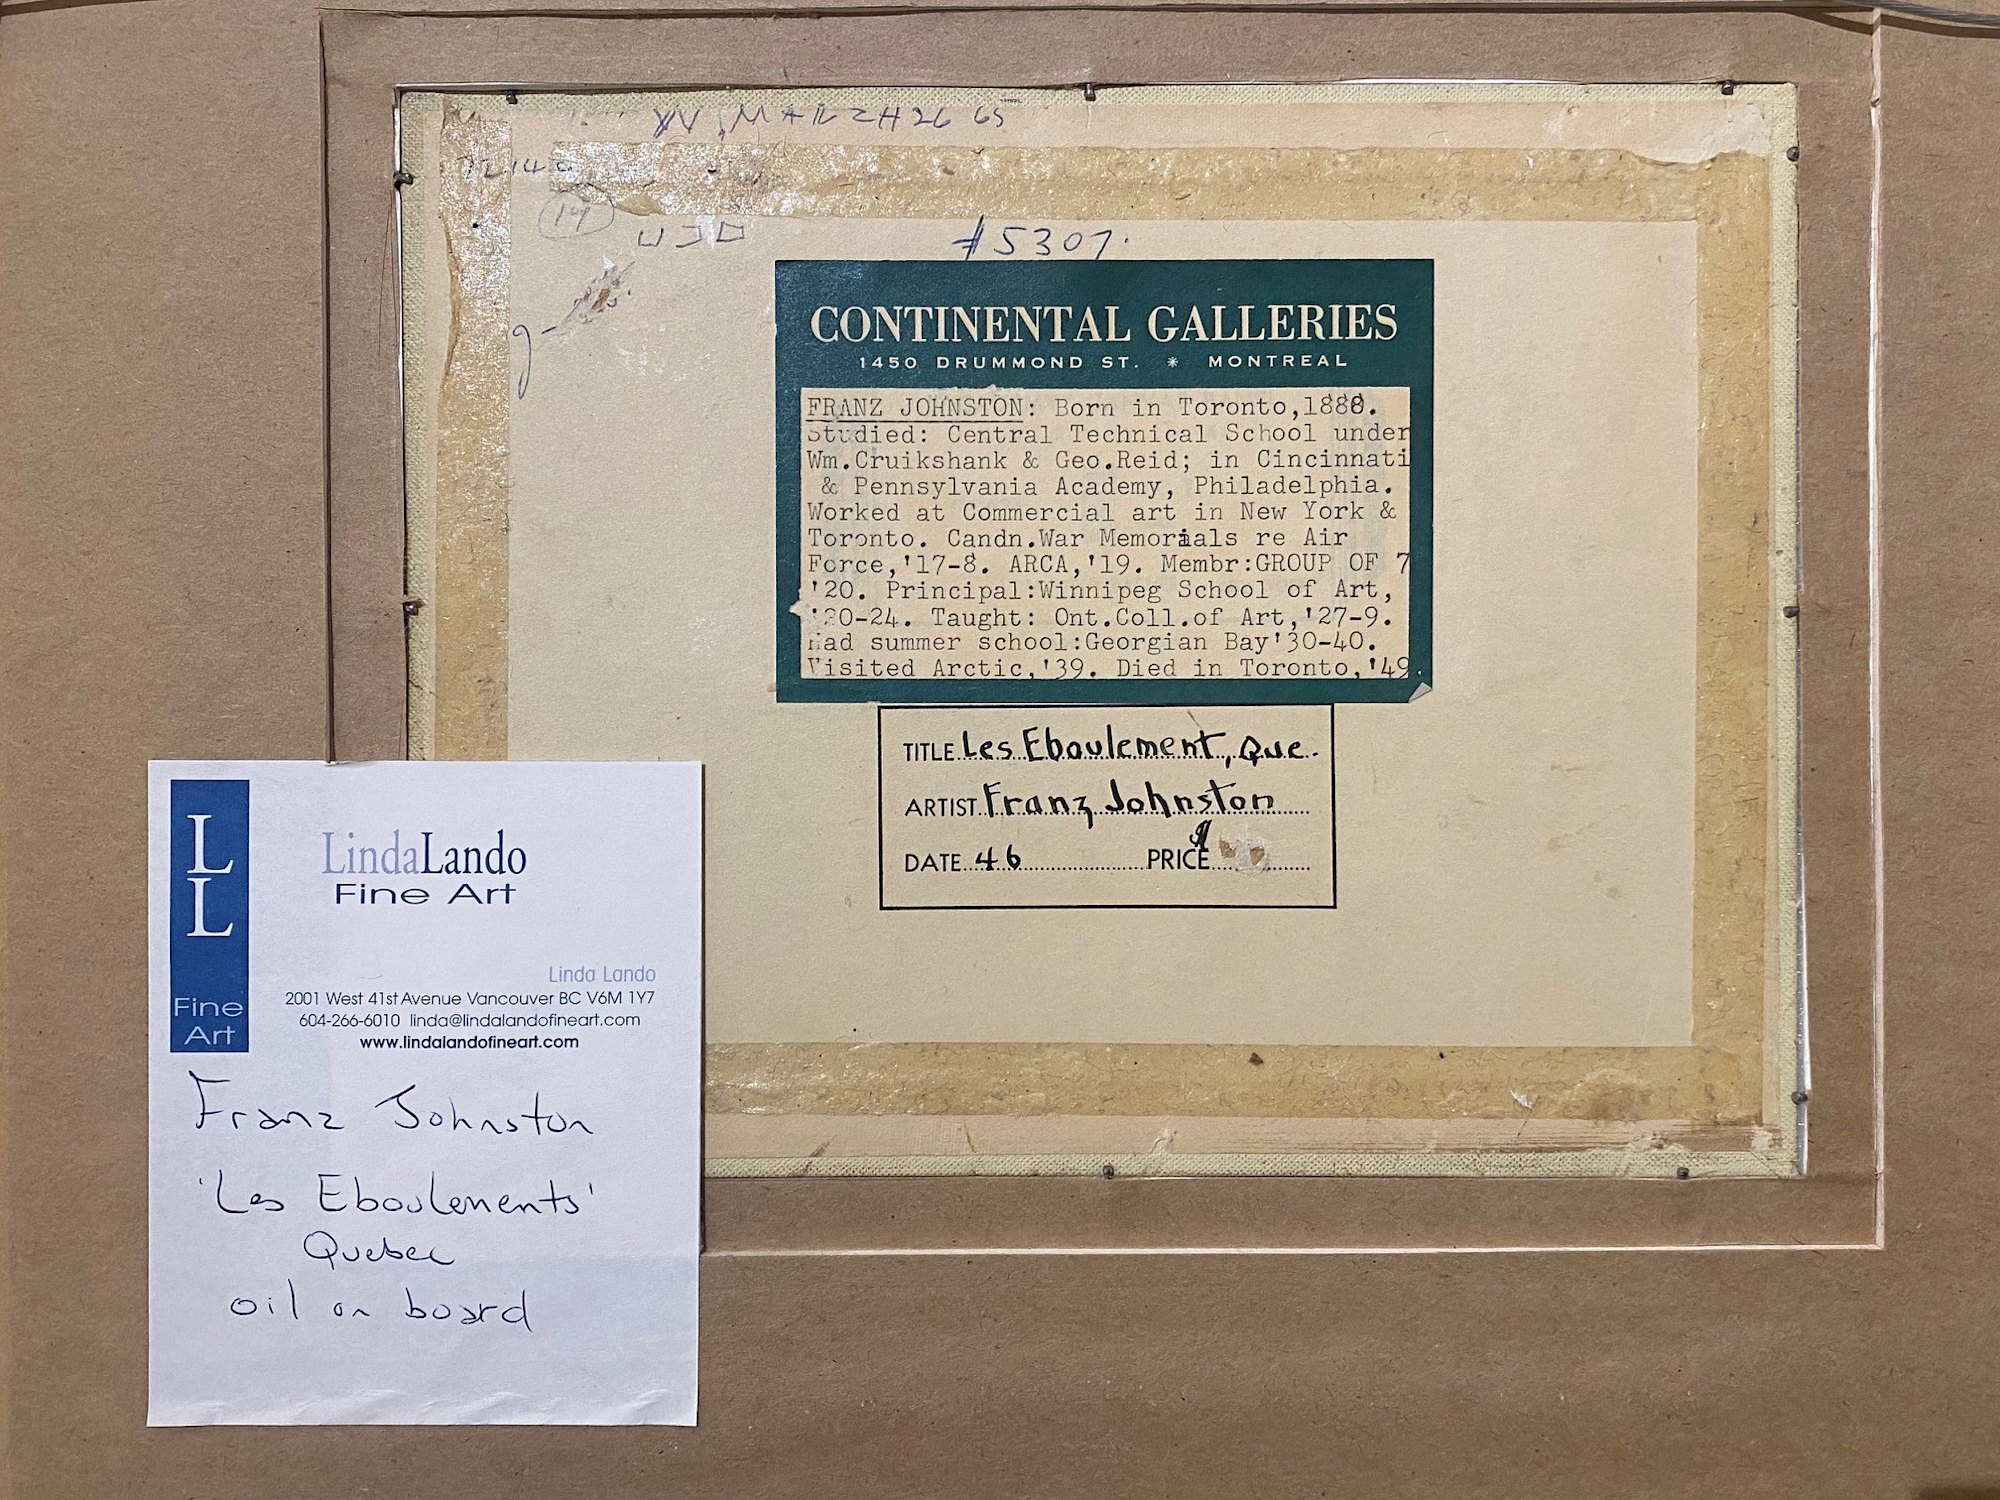 MARCH 26 65
#5307.
CONTINENTAL GALLERIES
1450 DRUMMOND ST. * MONTREAL
FRANZ JOHNSTON: Born in Toronto,1888.
Studied: Central Technical School under
Wm.Cruikshank & Geo.Reid; in Cincinnati
& Pennsylvania Academy, Philadelphia.
Worked at Commercial art in New York &
Toronto. Candn.War Memorials re Air
Force,'17-8. ARCA,'19. Membr:GROUP OF 7
'20. Principal:Winnipeg School of Art,
'20-24. Taught: Ont.Coll.of Art,'27-9.
Had summer school:Georgian Bay'30-40.
Visited Arctic,'39. Died in Toronto,'49.
TITLE Les Eboulement, Que.
ARTIST Franz Johnston
DATE 46 PRICE $
LL
Fine
Art
LindaLando
Fine Art
Linda Lando
2001 West 41st Avenue Vancouver BC V6M 1Y7
604-266-6010 linda@lindalandofineart.com
www.lindalandofineart.com
Franz Johnston
'Les Eboulements'
Quebec
oil on board